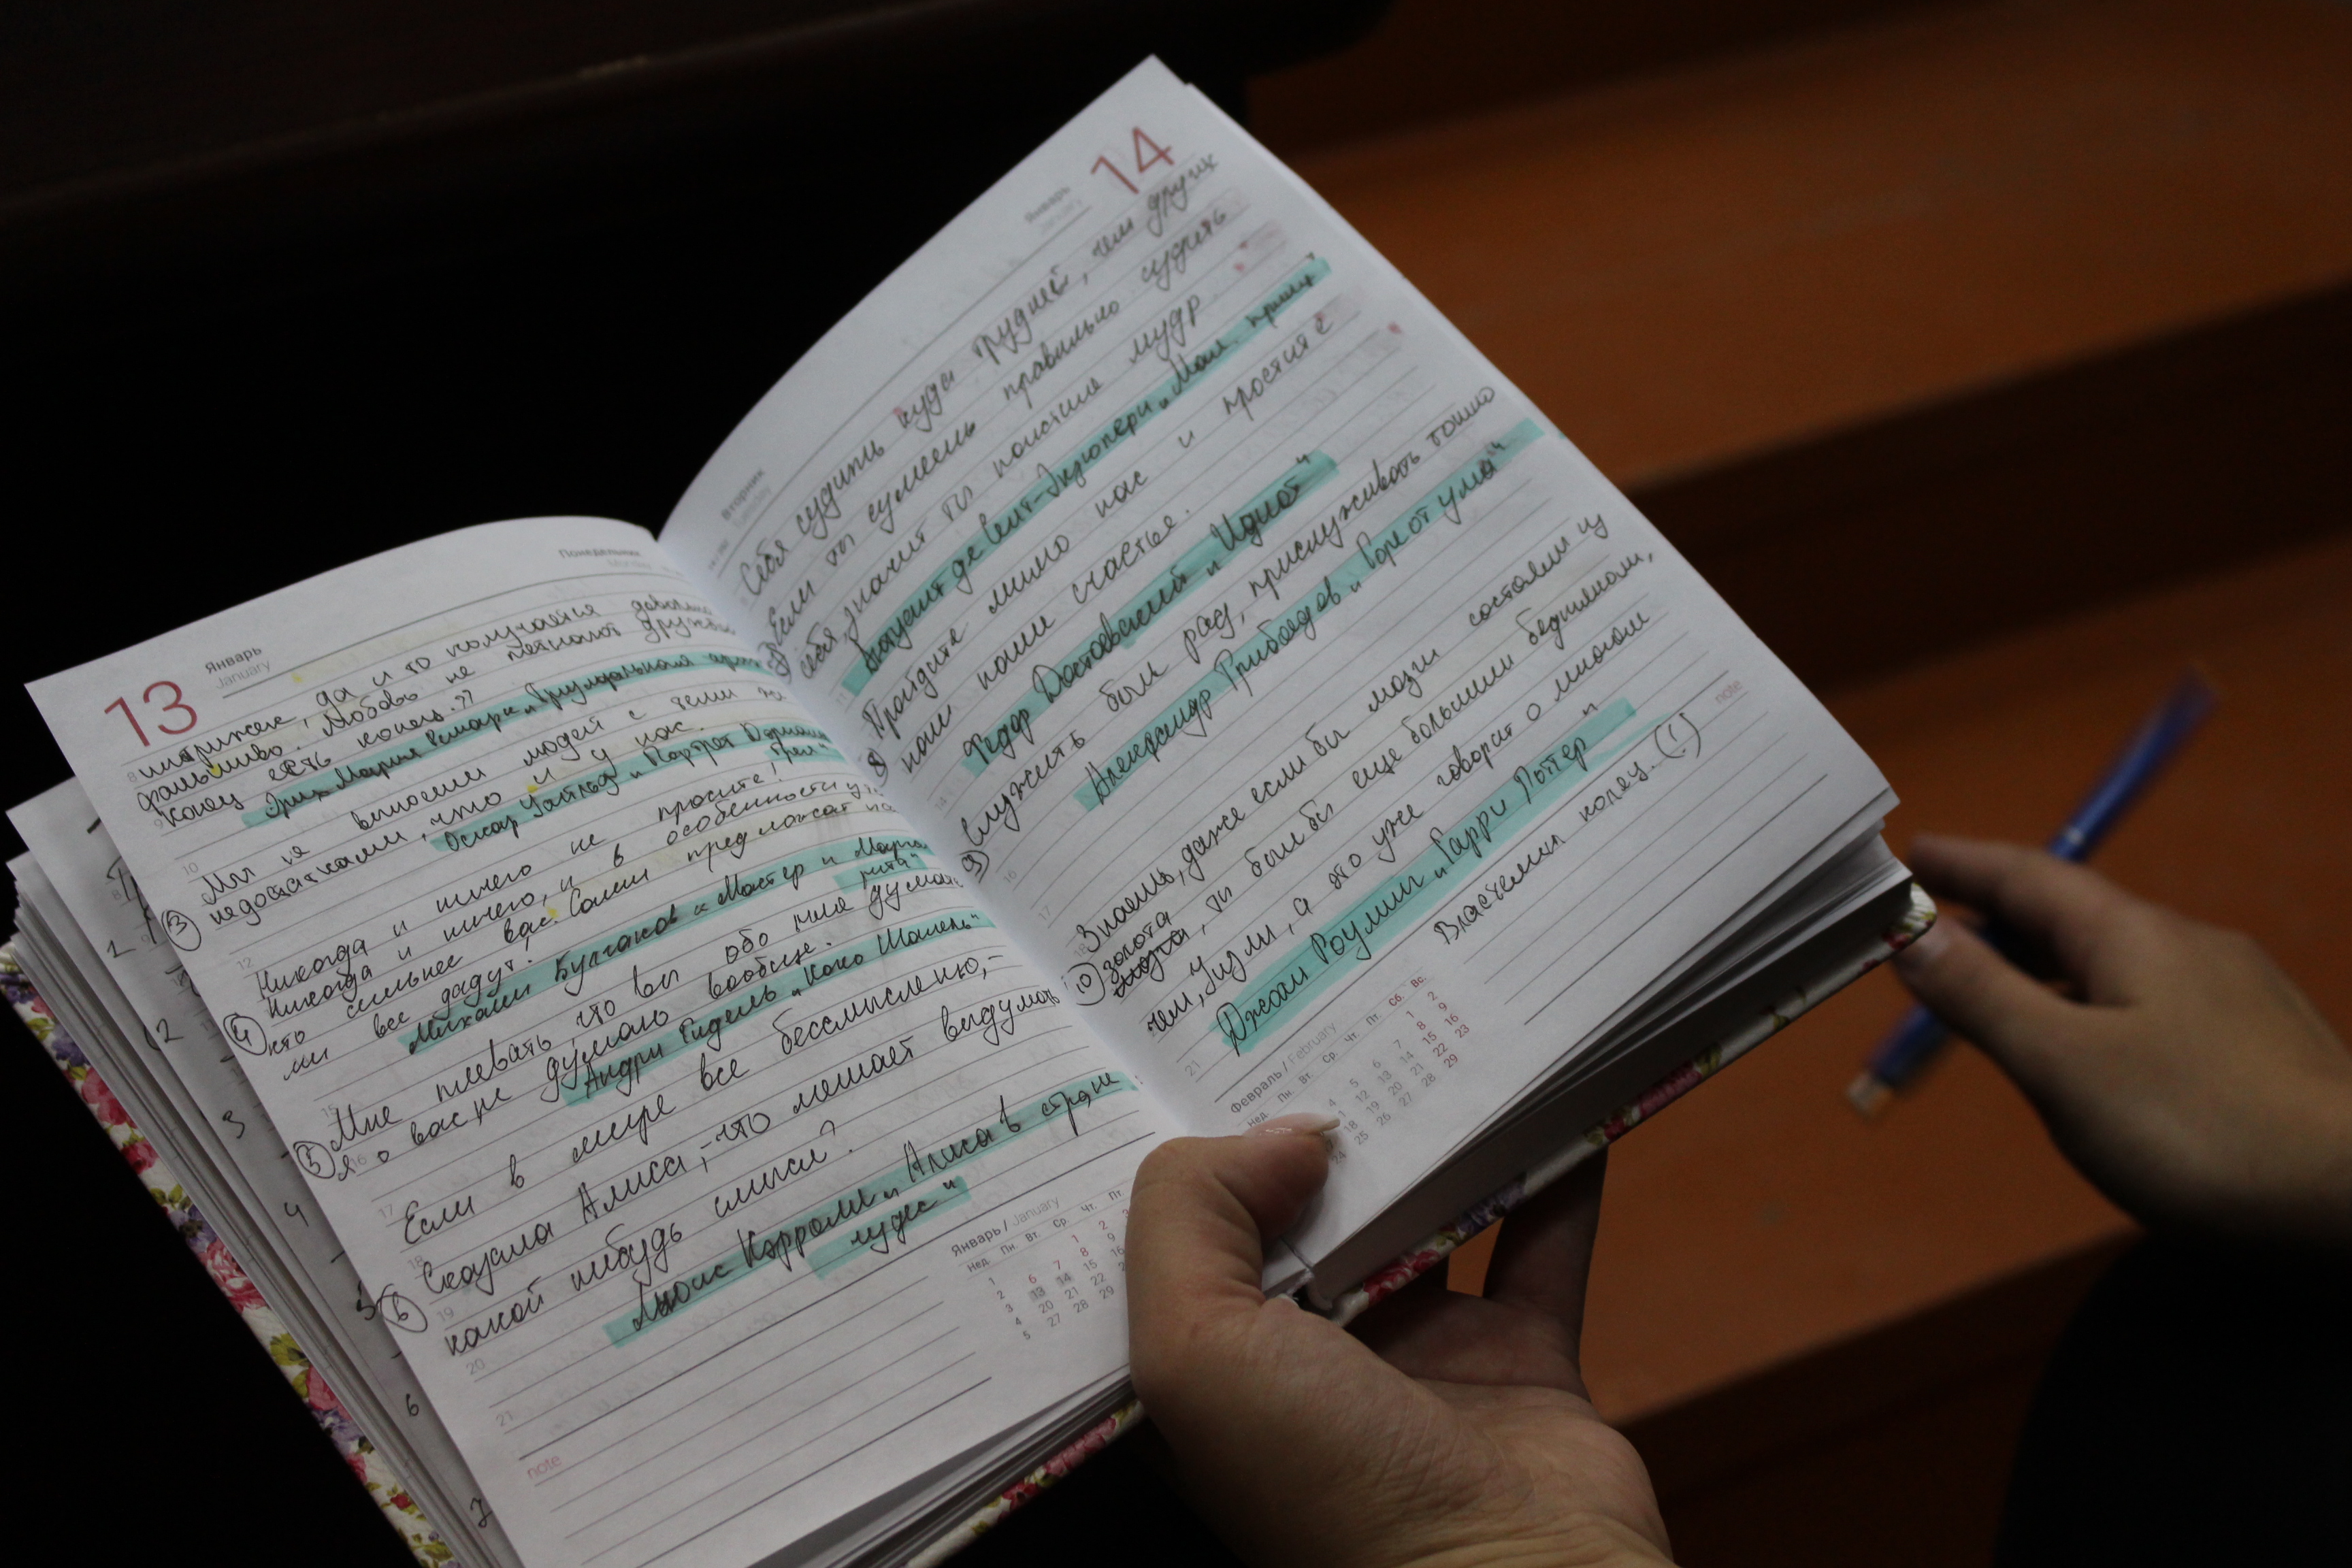 13
Январь
January
Понедельник
интрижек, да и то получается довольно
фальшиво. Любовь не пятнают дружбой
Конец есть конец.
Эрих Мария Ремарк „Триумфальная арка
3 Мы не выносим людей с теми же
недостатками, что и у нас.
Оскар Уайльд „Портрет Дориана
Грея"
Никогда и ничего не просите!
4 Никогда и ничего, и в особенности у тех
кто сильнее вас. Сами предложат
сами все дадут.
Михаил Булгаков „Мастер и Марга
рита"
5 Мне плевать, что вы обо мне думаете
я о вас не думаю вообще.
Андри Гидель „Коко Шанель"
Если в мире все бессмысленно,-
6 Сказала Алиса,- что мешает выдумать
какой нибудь смысл?
Льюис Кэрролл „Алиса в стране
чудес"
Январь / January
Нед. Пн Вт. Ср. Чт. Пт
1 1 2 3
2 6 7 8 9
3 13 14 15 16
4 20 21 22
5 27 28 29
note
14
Январь
January
Вторник
Себя судить куда трудней, чем других
Если ты сумеешь правильно судить
себя, значит ты поистине мудр
Антуан де Сент-Экзюпери „Мал. принц"
8 Пройдите мимо нас и простите
нам наше счастье.
Федор Достоевский „Идиот"
9 Служить бы рад, прислуживать тошно
Александр Грибоедов „Горе от ума"
Знаешь, даже если бы мозги состояли из
10 золота, ты был бы еще большим бедняком,
чем Уизли, а это уже говорит о многом
Джоан Роулинг „Гарри Поттер"
Властелин колец. (!)
note
Февраль / February
Нед. Пн. Вт. Ср. Чт. Пт. Сб. Вс.
1 2
4 5 6 7 8 9
11 12 13 14 15 16
18 19 20 21 22 23
24 25 26 27 28 29